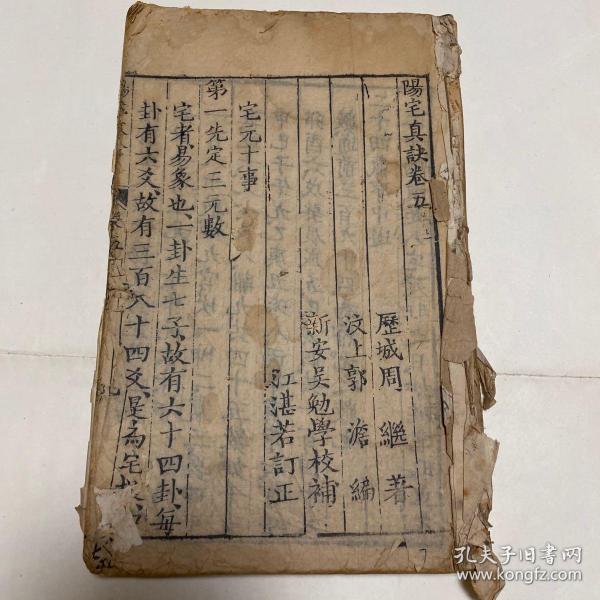 陽宅真訣卷五
歷城周繼著
汶上郭澹編
新安吳勉學校補
江湛若訂正
宅元十事
第一先定三元數
宅者易象也一卦生七子故有六十四卦每
卦有六爻故有三百八十四爻是為宅
孔夫子旧书网
www.kongfz.com